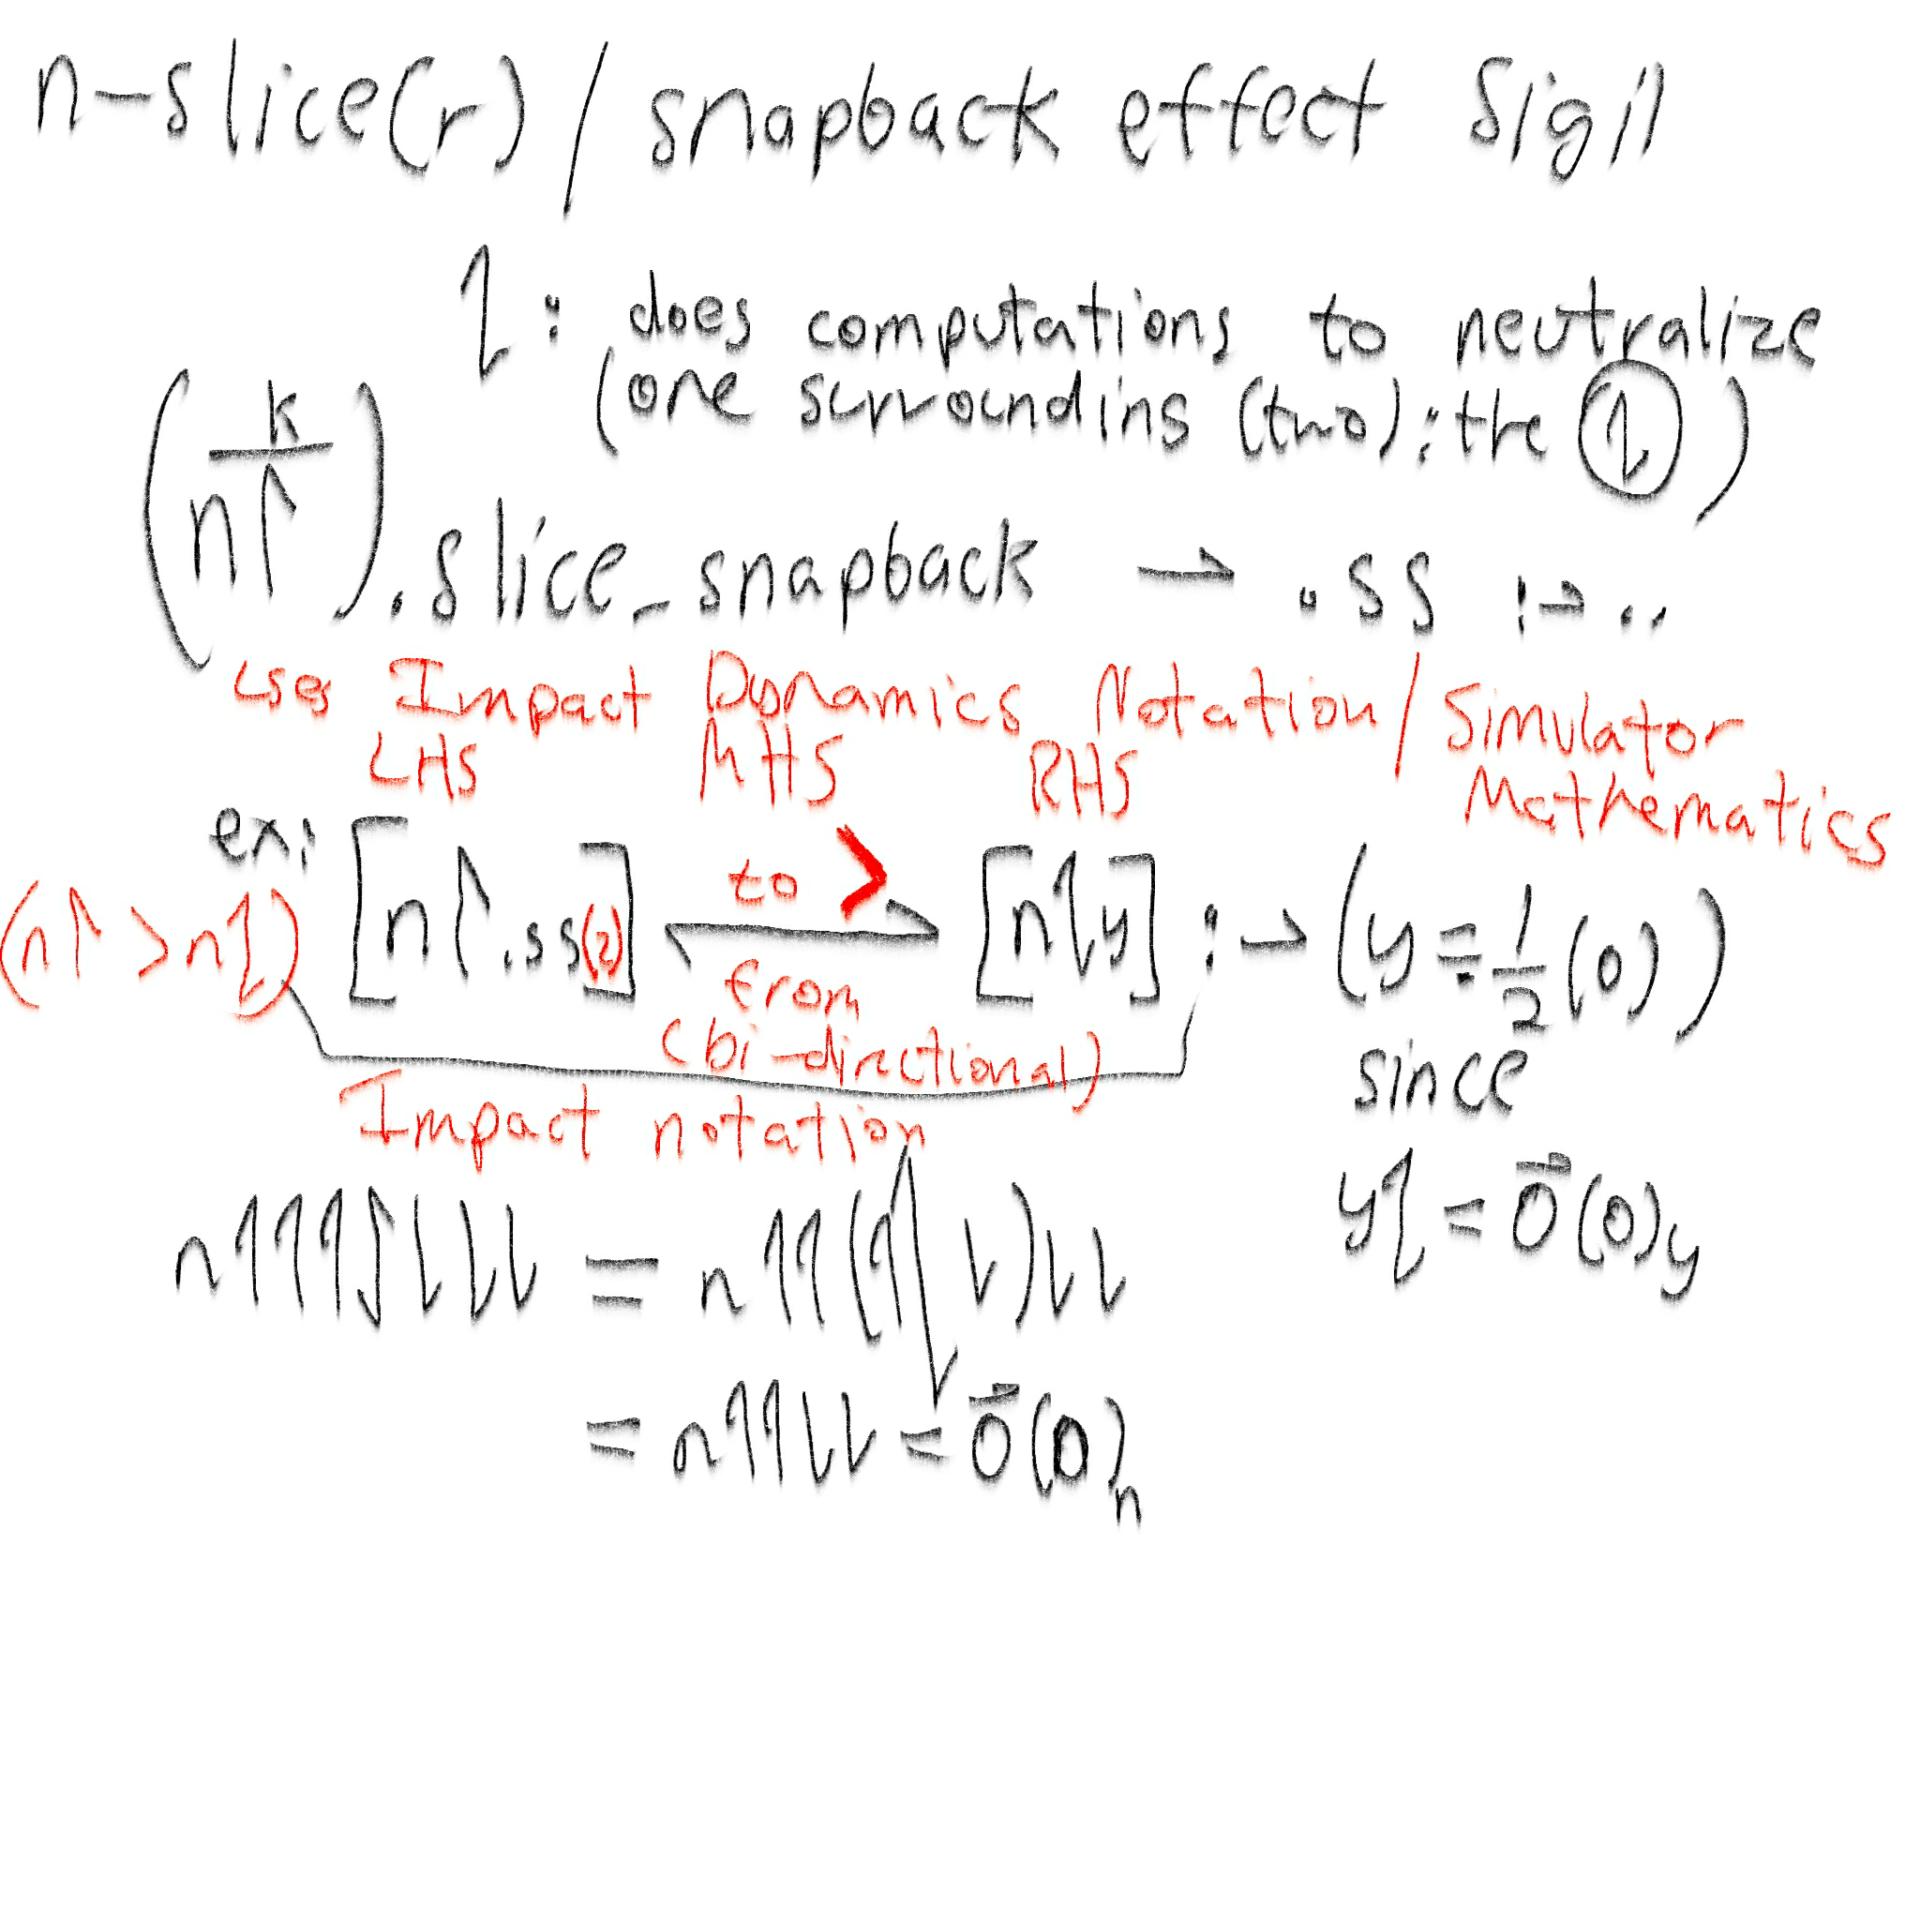 n-slice(r) / snapback effect Sigil
⇃: does computations to neutralize
(one surrounding (two); the ⇃)
(k / n↾).slice_snapback → .ss :→ ..
uses Impact Dynamics Notation / Simulator Mathematics
LHS MHS RHS
ex:
(n↾ > n) [n↾.ss(2)] to > from [n y] :→ (y = 1/2 (0))
(bi-directional)
since
Impact notation
n11 = n11
y = 0⃗(0)y
= n11 = 0⃗(0)n